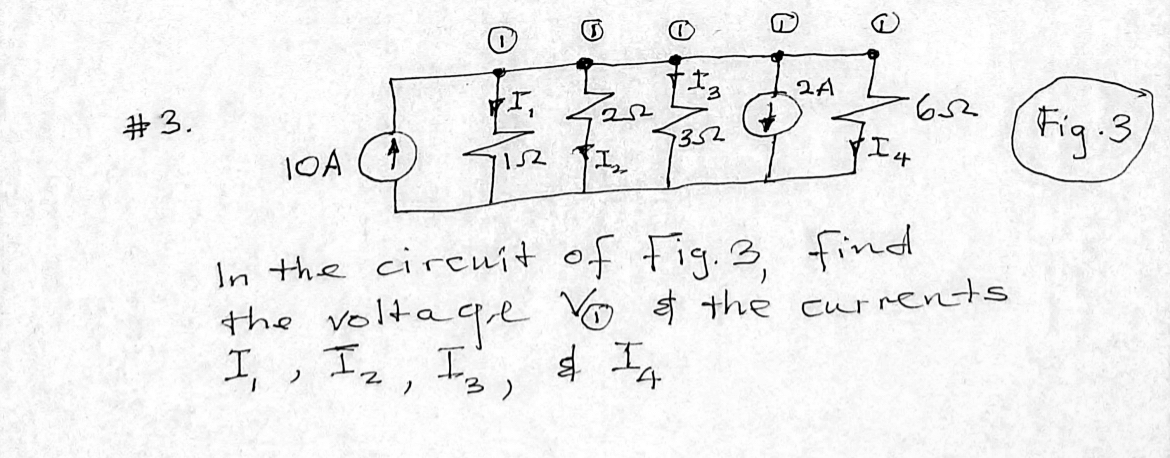 ① ① ① ① ①
#3.
10A
I₁
1Ω
2Ω
I₂
I₃
3Ω
2A
6Ω
I₄
Fig.3
In the circuit of Fig. 3, find
the voltage V① & the currents
I₁, I₂, I₃, & I₄